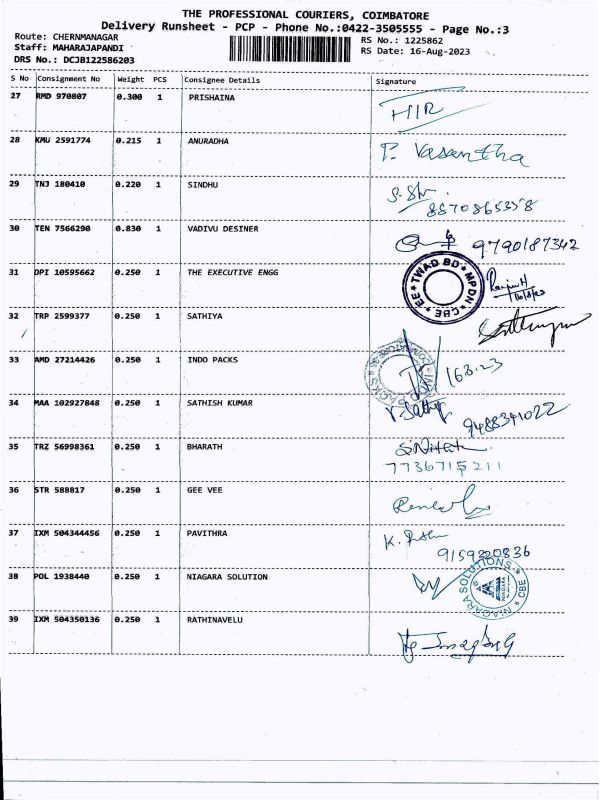 THE PROFESSIONAL COURIERS, COIMBATORE
Delivery Runsheet - PCP - Phone No.:0422-3505555 - Page No.:3
Route: CHERNMANAGAR
RS No.: 1225862
Staff: MAHARAJAPANDI
RS Date: 16-Aug-2023
DRS No.: DCJB122586203
S No Consignment No Weight PCS Consignee Details Signature
27 RMD 970807 0.300 1 PRISHAINA
28 KMU 2591774 0.215 1 ANURADHA P. Vasantha
29 TNJ 180410 0.220 1 SINDHU
30 TEN 7566290 0.830 1 VADIVU DESINER 9790187342
31 DPI 10595662 0.250 1 THE EXECUTIVE ENGG EE TWAD BD MPDN CBE
32 TRP 2599377 0.250 1 SATHIYA
33 AMD 27214426 0.250 1 INDO PACKS
34 MAA 102927848 0.250 1 SATHISH KUMAR
35 TRZ 56998361 0.250 1 BHARATH
7736715211
36 STR 588817 0.250 1 GEE VEE
37 IXM 504344456 0.250 1 PAVITHRA
38 POL 1938440 0.250 1 NIAGARA SOLUTION NIAGARA SOLUTIONS CBE
39 IXM 504350136 0.250 1 RATHINAVELU